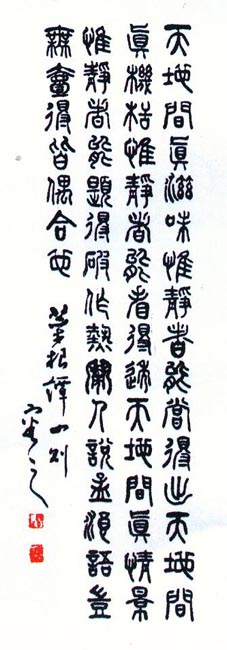 天地間眞滋味惟靜者能嘗得出天地間
眞機栝惟靜者能看得透天地間眞情景
惟靜者能題得破作熱鬧人說孟浪語豈
無壹得皆偶合也
菜根譚一則